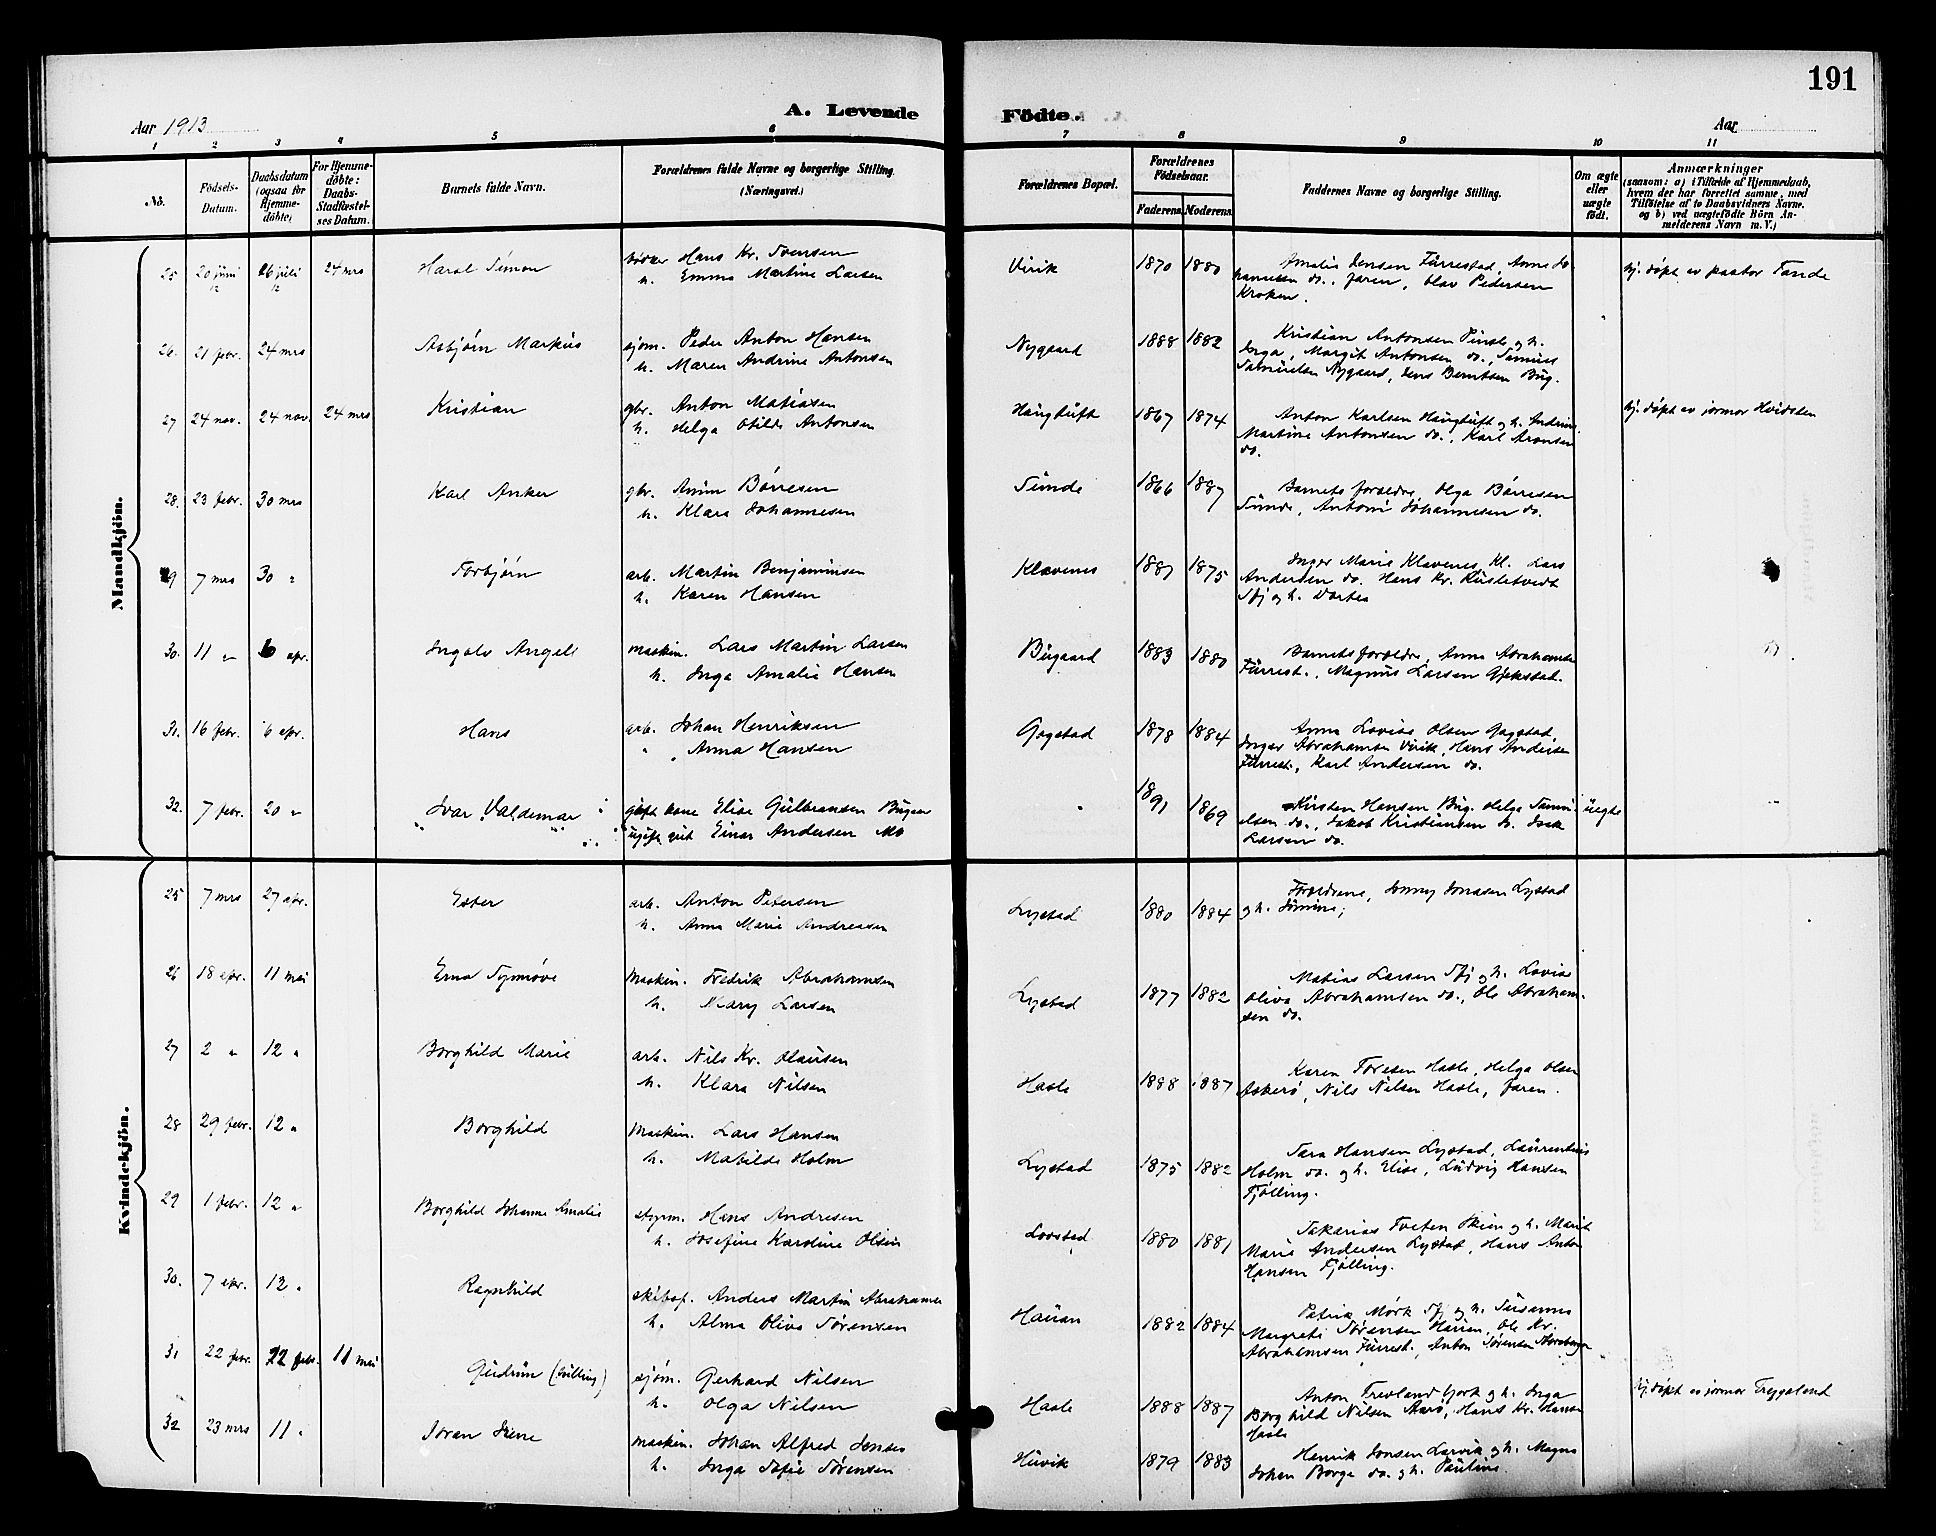 191
A. Levende Födte.
Aar 1913
Aar
1 2 3 4 5 6 7 8 9 10 11
No.
Födsels-Datum.
Daabsdatum (ogsaa for Hjemme-döbte)
For Hjemme-döbte: Daabs-Stadfæstel-ses Datum.
Barnets fulde Navn.
Forældrenes fulde Navne og borgerlige Stilling. (Næringsvei.)
Forældrenes Bopæl.
Forældrenes Födselsaar.
Faderens Moderens
Faddernes Navne og borgerlige Stilling.
Om ægte eller uægte födt.
Anmærkninger
(saasom: a) i Tilfælde af Hjemmedaab, hvem der har forrettet samme, med Tilföielse af to Daabsvidners Navne, og b) ved uægtefödte Börn An-melderens Navn m. V.)
Mandkjön.
25 20 juni 12 26 juli 12 24 mrs Haral Simon
Hans Kr. Iversen
h. Emma Martine Larsen
Virik 1870 1880
Amalie Jensen Fürrestad, Anne Jo-
hannesen do., faren, Olav Pedersen
Kroken.
hj. döpt av pastor Tande
26. 21 febr. 24 mrs Asbjörn Markus
sjöm. Peder Anton Hansen
h. Maren Andrine Antonsen
Nygaard 1888 1882
Kristian Antonsen Pinsl. og h.
Inga, Margit Antonsen do.,
Nygaard, Jens Berntsen Büg.
27 24 nov. 24 nov. 24 mrs Kristian
gbr. Anton Matiasen
h. Helga Otilde Antonsen
Haugtuft 1867 1874
Anton Karlsen Haugtuft og h.
Martine Antonsen do., Karl Aronsen
do.
hj. döpt av jormor Hvidsten
28. 23 febr. 30 mrs Karl Anker
gbr. Anton Börresen
h. Klara Johannesen
Sunde 1866 1887
Barnets forældre, Olga Börresen
Sunde, Antoni Johannesen do.
29 7 mrs 30 " Torbjörn
arb. Martin Benjaminsen
h. Karen Hansen
Klavenes 1881 1875
Inger Marie Klavenes Kl. Lars
Andersen do. Hans Kr.
Sfj og h. Dortea
30. 11 " 6 apr. Ingolv Angell
maskin. Lars Martin Larsen
h. Inga Amalie Hansen
Bugaard 1883 1880
Barnets forældre, Anna Abrahamsen
Fürrest., Magnus Larsen Gjekstad.
31. 16 febr. 6 apr. Hans
arb. Johan Henriksen
" Anna Hansen
Gogstad 1878 1884
Anna Lovise Olsen Gogstad,
Inger Abrahamsen Virik, Hans Andersen
Fürrest., Karl Andersen do.
32. 7 febr. 20 " Ivar Valdemar
gift kone Elise Gulbransen Bugaar
ugift gut Einar Andersen Mo
" 1891 1869
Kirsten Hansen Büg. Helga Samu-
elsen do., Jakob Kristiansen do. Isak
Larsen do.
uegte
Kvindekjön.
25 7 mrs 27 apr. Ester
arb. Anton Petersen
h. Anna Marie Andreasen
Lystad 1880 1884
Forældrene, Jonny Jonasen Lystad
og h. Jörnine;
26 18 apr. 11 mai Erna Synnöve
Maskin. Fredrik Abrahamsen
h. Mary Larsen
Lystad 1877 1882
Matias Larsen Sfj og h. Lovise
Oliva Abrahamsen do., Ole Abraham-
sen do.
27 2 " 12 " Borghild Marie
arb. Nils Kr. Olausen
h. Klara Nilsen
Hasle 1888 1887
Karen Toresen Hasle, Helga Olsen
Askerö, Nils Nilsen Hasle, faren.
28 29 febr. 12 " Borghild
Maskin. Lars Hansen
h. Matilde Holm
Lystad 1875 1882
Sara Hansen Lystad, Laurentius
Holm do. og h. Elise, Ludvig Hansen
Fjölling.
29 1 febr. 12 " Borghild Johanne Amalie
styrm. Hans Andresen
h. Josefine Karoline Olsen
Lovstad 1880 1881
Sakarias Tveten Skien og h. Marit
Marie Andersen Lystad, Hans Anton
Hansen Fjölling.
30. 7 apr. 12 " Ragnhild
skibsf. Anders Martin Abrahamsen
h. Alma Oliva Sörensen
Hauan 1882 1884
Patrik Mörk Sfj og h. Susanna
Margrete Sörensen Hauen, Ole Kr.
Abrahamsen Fürrest., Anton Sörensen
31 22 febr. 22 febr. 11 mai Gudrun (tvilling)
sjöm. Gerhard Nilsen
h. Olga Nilsen
Hasle 1888 1887
Anton Trevland York og h. Inga
Borghild Nilsen Aarö, Hans Kr. Hansen
Hasle
hj. döpt av jormor Tregaland
32 23 mrs 11 " Joran Irene
maskin. Johan Alfred Jensen
h. Inga Sofie Sörensen
Huvik 1879 1883
Henrik Jonsen Larvik og h. Magna
Johan Borge do. og h. Pauline.